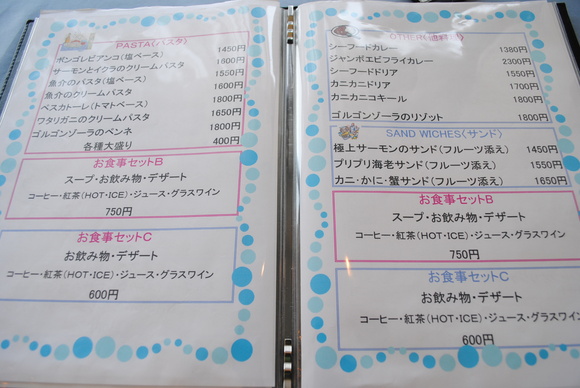 PASTA(パスタ)
ボンゴレビアンコ(塩ベース) 1450円
サーモンとイクラのクリームパスタ 1600円
魚介のパスタ(塩ベース) 1550円
魚介のクリームパスタ 1600円
ペスカトーレ(トマトベース) 1800円
ワタリガニのクリームパスタ 1650円
ゴルゴンゾーラのペンネ 1800円
各種大盛り 400円
お食事セットB
スープ・お飲み物・デザート
コーヒー・紅茶(HOT・ICE)・ジュース・グラスワイン
750円
お食事セットC
お飲み物・デザート
コーヒー・紅茶(HOT・ICE)・ジュース・グラスワイン
600円
シーフードカレー 1380円
ジャンボエビフライカレー 2300円
シーフードドリア 1550円
カニカニドリア 1700円
カニカニコキール 1800円
ゴルゴンゾーラのリゾット 1800円
SAND WICHES(サンド)
極上サーモンのサンド(フルーツ添え) 1450円
プリプリ海老サンド(フルーツ添え) 1550円
カニ・かに・蟹サンド(フルーツ添え) 1650円
お食事セットB
スープ・お飲み物・デザート
コーヒー・紅茶(HOT・ICE)・ジュース・グラスワイン
750円
お食事セットC
お飲み物・デザート
コーヒー・紅茶(HOT・ICE)・ジュース・グラスワイン
600円